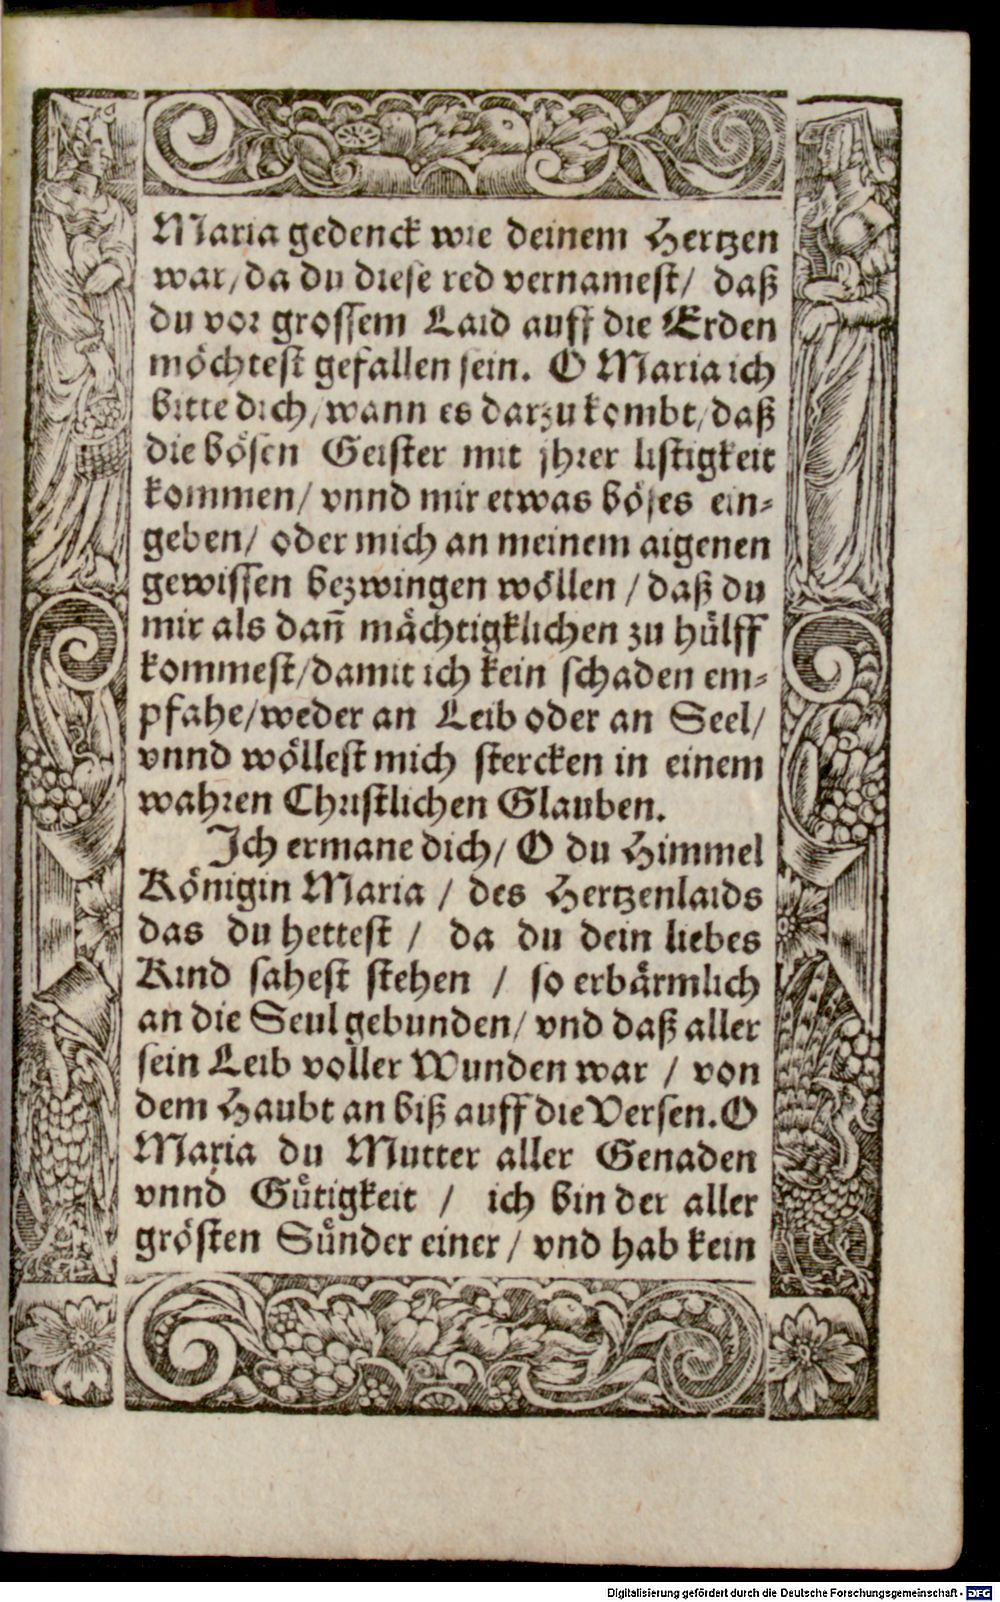 Maria gedenck wie deinem Hertzen
war/da du diese red vernamest/ daß
du vor grossem Laid auff die Erden
möchtest gefallen sein. O Maria ich
bitte dich/wann es darzu kombt/daß
die bösen Geister mit jhrer listigkeit
kommen/ vnnd mir etwas böses ein-
geben/ oder mich an meinem aigenen
gewissen bezwingen wöllen / daß du
mir als dañ mächtigklichen zu hülff
kommest/damit ich kein schaden em-
pfahe/weder an Leib oder an Seel/
vnnd wöllest mich stercken in einem
wahren Christlichen Glauben.
Ich ermane dich/ O du Himmel
Königin Maria / des Hertzenlaids
das du hettest / da du dein liebes
Kind sahest stehen / so erbärmlich
an die Seul gebunden/ vnd daß aller
sein Leib voller Wunden war / von
dem Haubt an biß auff die Versen. O
Maria du Mutter aller Genaden
vnnd Gütigkeit / ich bin der aller
grösten Sünder einer / vnd hab kein
Digitalisierung gefördert durch die Deutsche Forschungsgemeinschaft - DFG